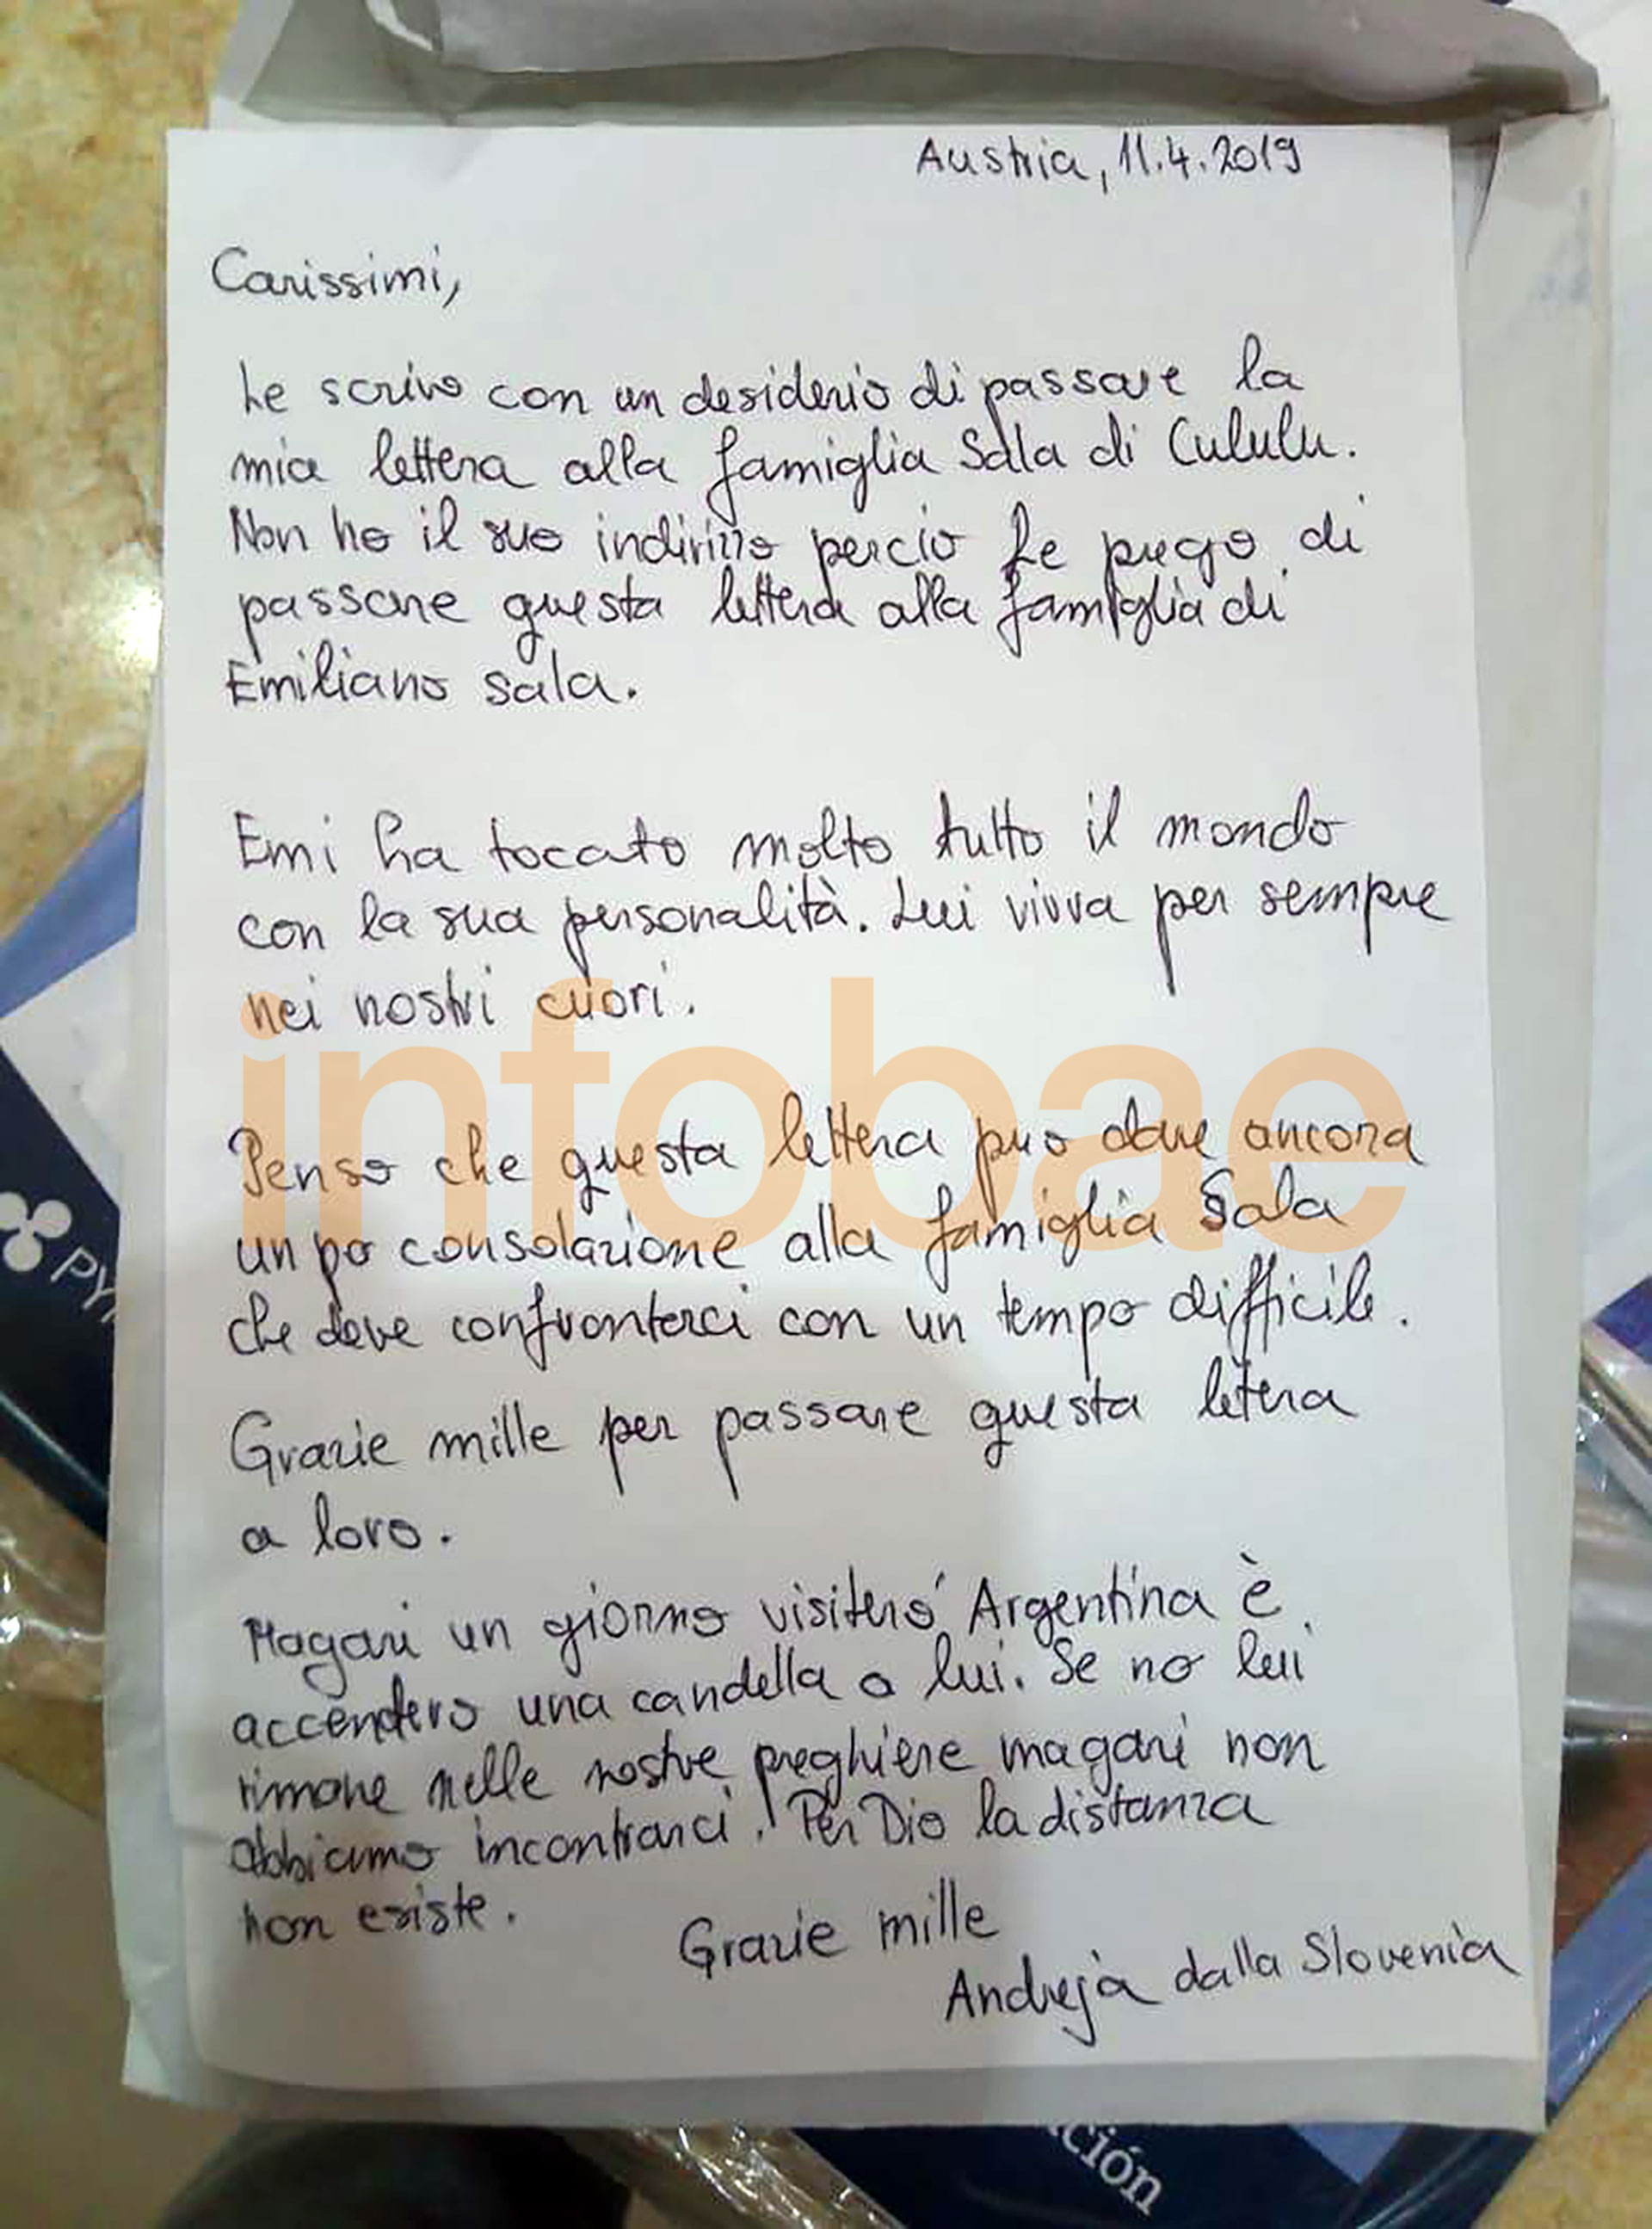 Austria, 11.4.2019
Carissimi,
Le scrivo con un desiderio di passare la
mia lettera alla famiglia Sala di Cululu.
Non ho il suo indirizzo percio Le prego di
passare questa lettera alla famiglia di
Emiliano Sala.
Emi ha toccato molto tutto il mondo
con la sua personalità. Lui vivva per sempre
nei nostri cuori.
infobae
Penso che questa lettera puo dare ancora
un po consolazione alla famiglia Sala
che deve confrontarci con un tempo difficile.
Grazie mille per passare questa letera
a loro.
Magari un giorno visiteró Argentina è
accendero una candella a lui. Se no lui
rimane nelle nostre preghiere magari non
abbiamo incontrarci! Per Dio la distanza
non existe.
Grazie mille
Andreja dalla Slovenia
PY
ción